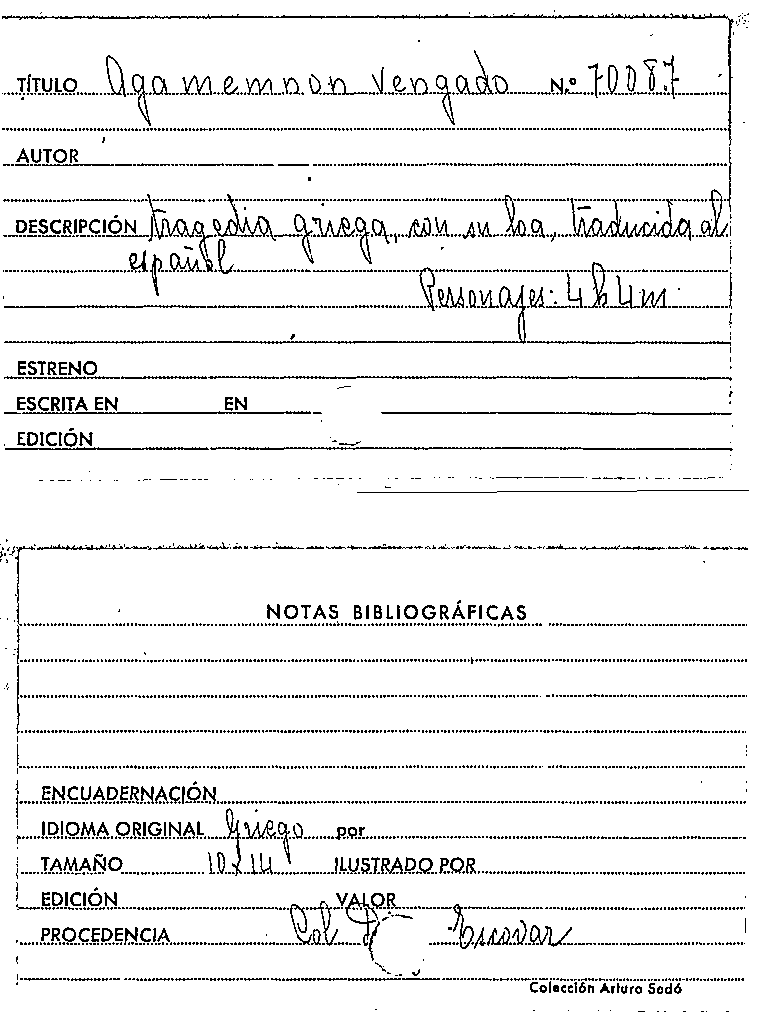 TÍTULO Agamemnon vengado N.º 70087
AUTOR
DESCRIPCIÓN tragedia griega, con su loa, traducida al
español
Personajes: 4 h 4 m.
ESTRENO
ESCRITA EN EN
EDICIÓN
NOTAS BIBLIOGRÁFICAS
ENCUADERNACIÓN
IDIOMA ORIGINAL Griego por
TAMAÑO 10x14 ILUSTRADO POR
EDICIÓN VALOR
PROCEDENCIA Col Escovar
Colección Arturo Sedó